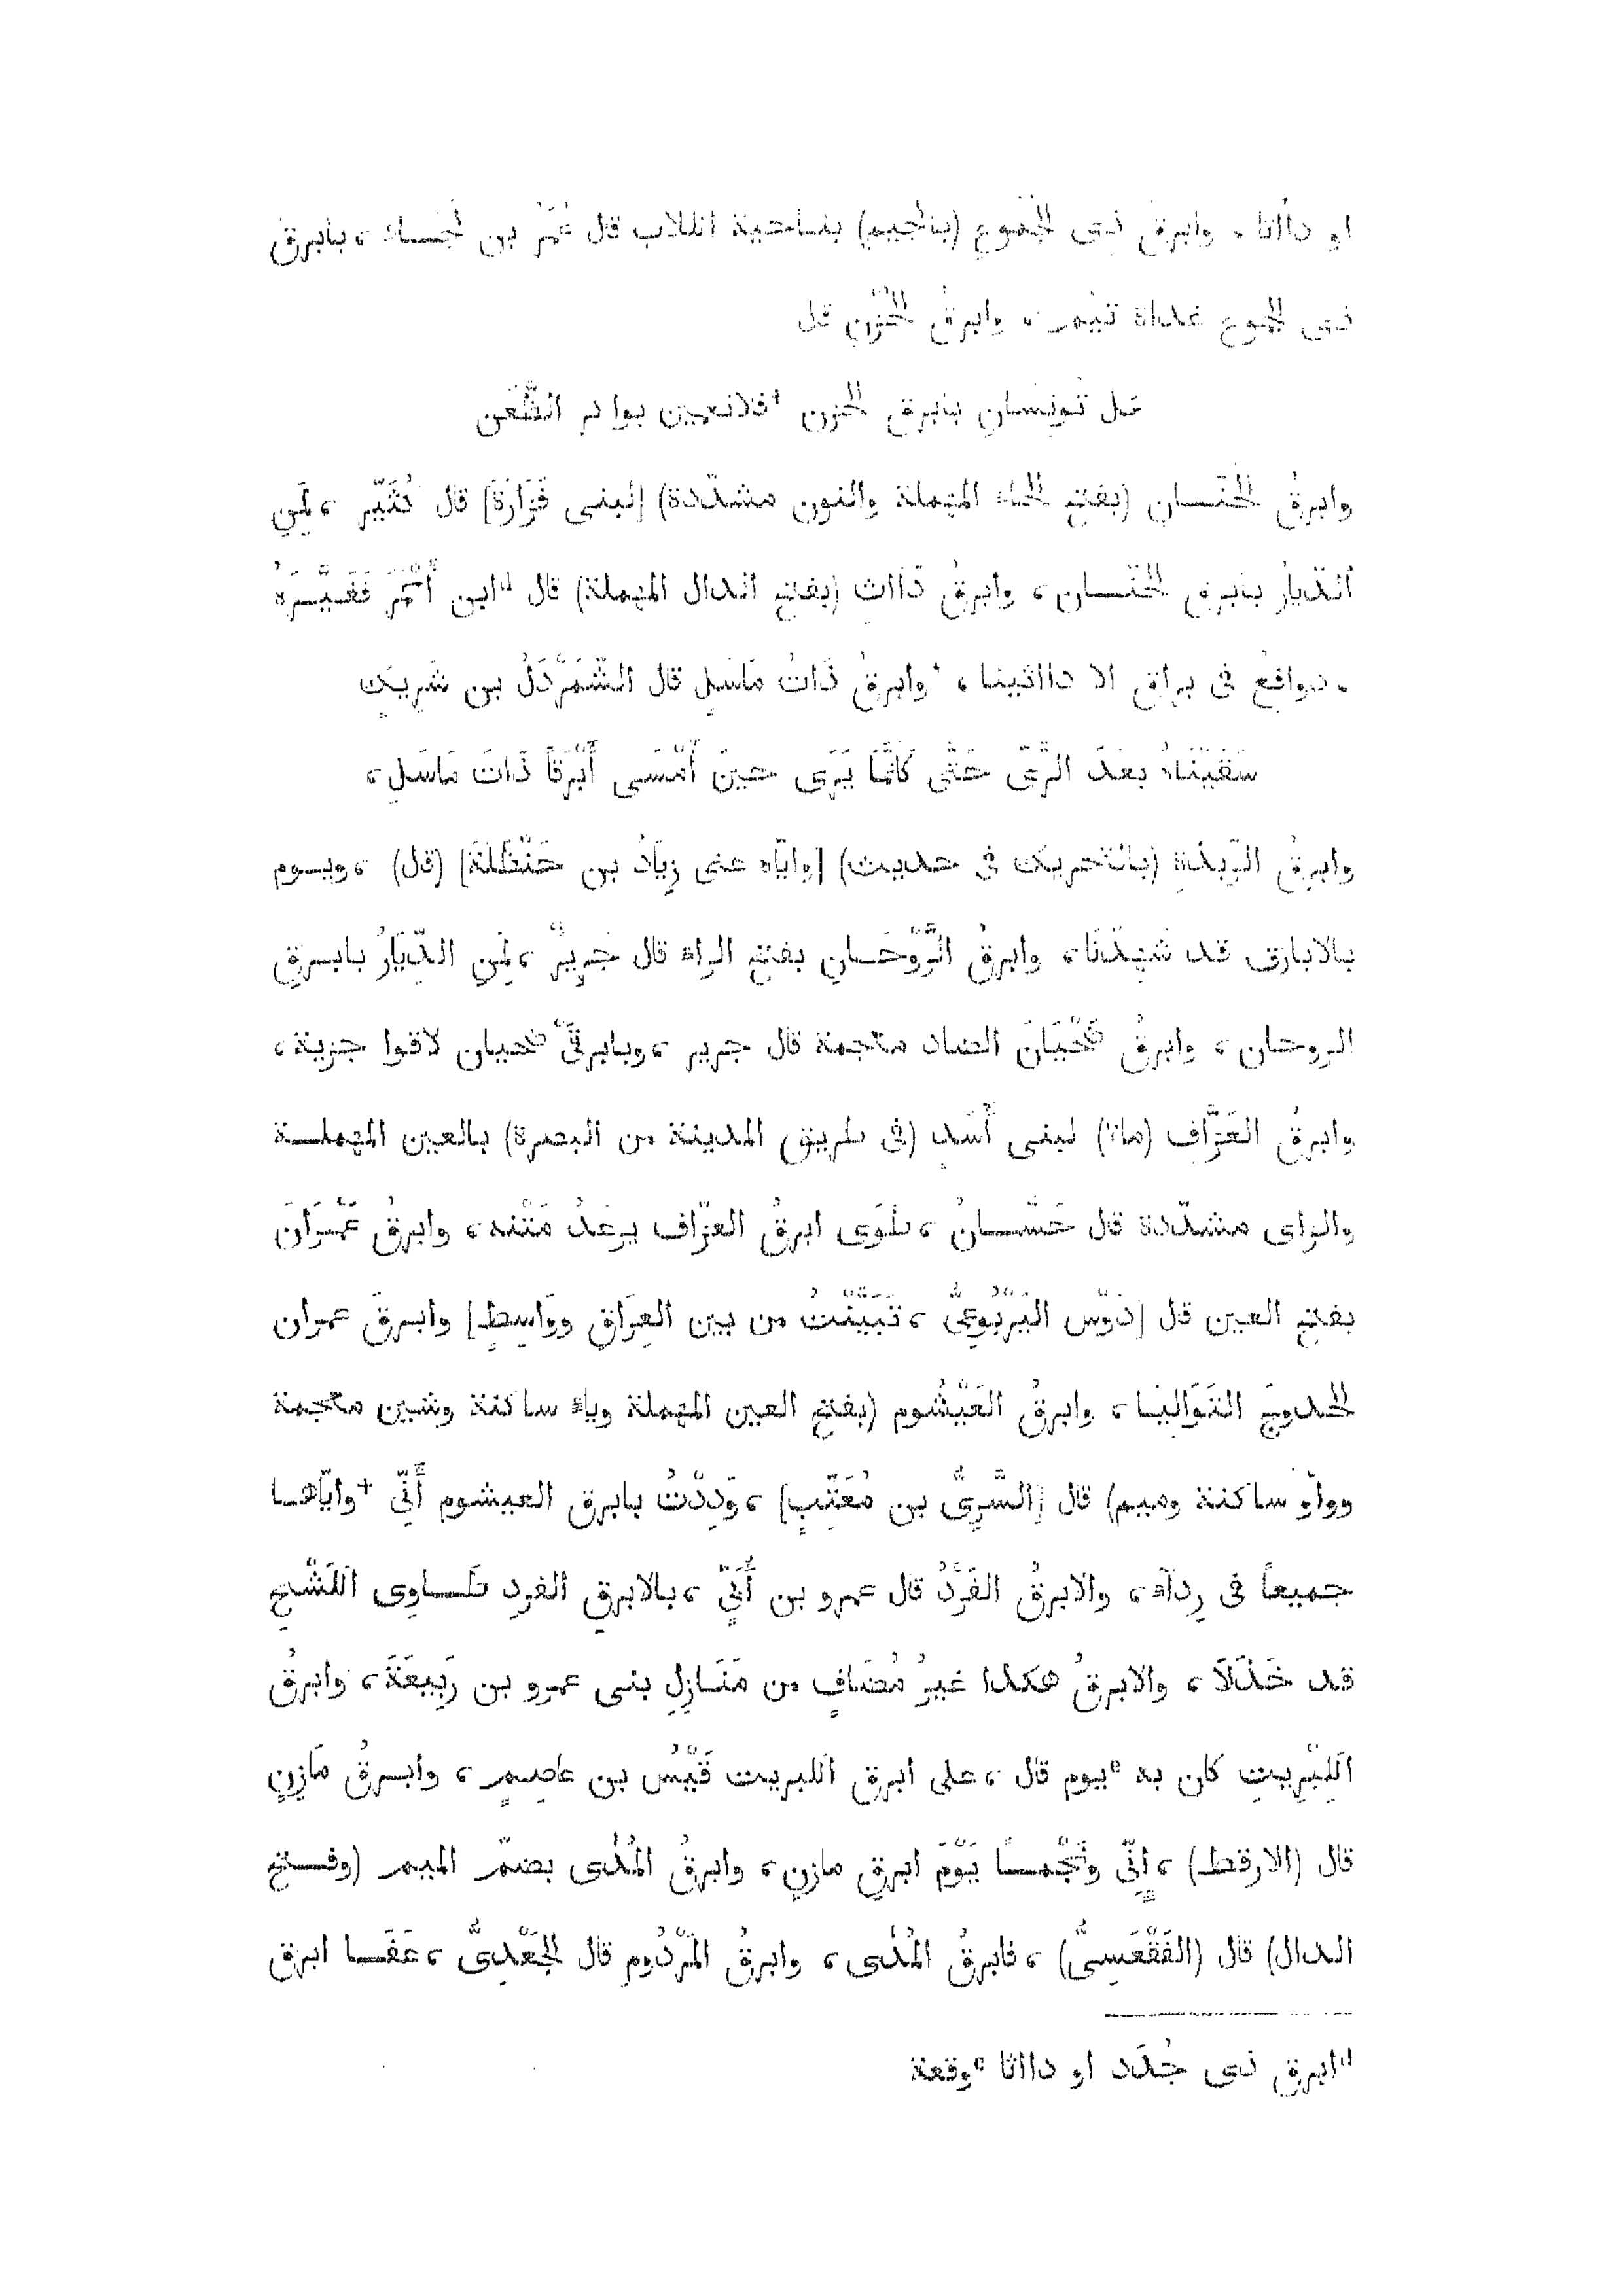 او دااثا ، وابرقُ ذى الجموع (بالجيم) بناحية الكلاب قال عُمَرُ بن لجساء ، بابرق
ذى الجموع غداة تيم ، وابرقُ الحَزْن قال
هل تونسان بابرق الحزن فالانعمين بواكر الظُّعْن
وابرقُ الحَنّان (بفتح الحاء المهملة والنون مشدّدة) [لبنى فَزَارَة] قال كُثَيّر ، لِمَنِ
الدّيارُ بابرق الحَنّان ، وابرقُ دَااث (بفتح الدال المهملة) قال ابن أَحْمَرَ فَغَيَّرَهُ
، دوافعُ فى براق الا دااثينا ، وابرقُ ذَاتُ مَاسَلٍ قال الشَّمَرْدَلُ بن شَرِيكٍ
سَقَيْنَاهُ بعدَ الرّىّ حَتَّى كَانَّمَا يَرَى حينَ أَمْسَى أَبْرَقَا ذَات مَاسَلِ ،
وابرقُ الرَّبَذَةِ (بالتحريك فى حديث) [واياه عنى زِيَادُ بن حَنْظَلَة] (قال) ، ويوم
بالابارق قد شَهِدْنَا ، وابرقُ الرَّوْحَان بفتح الراء قال جَرِيرٌ ، لِمَنِ الدّيَارُ بابرقِ
الروحان ، وابرقُ ضَحْيَانَ الضاد معجمة قال جرير ، وبابرقَىْ ضحيان لاقوا جزية ،
وابرقُ العَزَّاف (ماء) لبنى أَسَد (فى طريق المدينة من البصرة) بالعين المهملة
والزاى مشدّدة قال حَسَّانُ ، طَوَى ابرقُ العزّاف يرعدُ مَتْنه ، وابرقُ عَمْرَانَ
بفتح العين قال [دَوْس اليَرْبُوعىُّ ، تَبَيَّنْتُ من بين العِرَاقِ ووَاسِطٍ] وابرقَ عمران
الحدوجَ التَوَالِيَا ، وابرقُ العَيْشُوم (بفتح العين المهملة وياء ساكنة وشين معجمة
وواو ساكنة وميم) قال [السَّرِىُّ بن مُعَتِّبٍ] ، وَدِدْتُ بابرق العيشوم أَنِّى واِيّاها
جميعاً فى رِدَآء ، والابرقُ الفَرْدُ قال عمرو بن أُبَىٍّ ، بالابرقِ الفردِ طاوِى الكَشْحِ
قد خَذَلَا ، والابرقُ هكذا غيرُ مُضَافٍ من مَنَازِلِ بنى عمرو بن رَبِيعَةَ ، وابرقُ
الكِبْرِيتِ كان به يوم قال ، على ابرق الكبريت قَيْسُ بن عاصِمٍ ، وابرقُ مَازِنٍ
قال (الارقط) ، اِنِّى ونَجْماً يَوْمَ ابرقِ مازنٍ ، وابرقُ المُدَى بضمّ الميم (وفتح
الدال) قال (الفَقْعَسِىُّ) ، فابرقُ المُدَى ، وابرقُ المَرْدُومِ قال الجَعْدِىُّ ، عَفَا ابرق
ابرق ذى جُدَد او دااثا وقعة